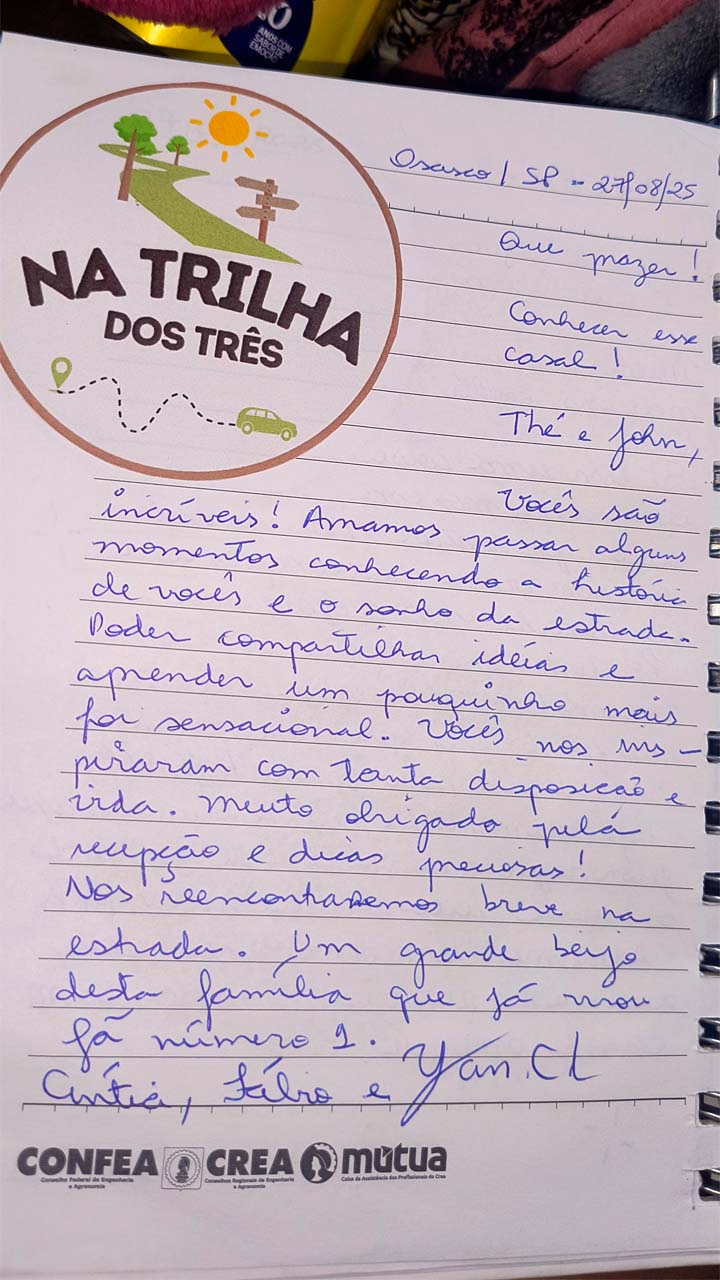 50
ANOS COM
SABOR DE
EMOÇÃO
NA TRILHA
DOS TRÊS
Osasco / SP - 27/08/25
Que prazer!
Conhecer esse
casal!
Thé e John,
Vocês são
incríveis! Amamos passar alguns
momentos conhecendo a história
de vocês e o sonho da estrada.
Poder compartilhar idéias e
aprender um pouquinho mais
foi sensacional. Vocês nos ins-
piraram com tanta disposição e
vida. Muito obrigado pela
recepção e dicas preciosas!
Nos reencontraremos breve na
estrada. Um grande beijo
desta família que já virou
fã número 1.
Cíntia, Fábio e Yan.CL
CONFEA CREA mútua
Conselho Federal de Engenharia e Agronomia
Conselhos Regionais de Engenharia e Agronomia
Caixa de Assistência dos Profissionais do Crea